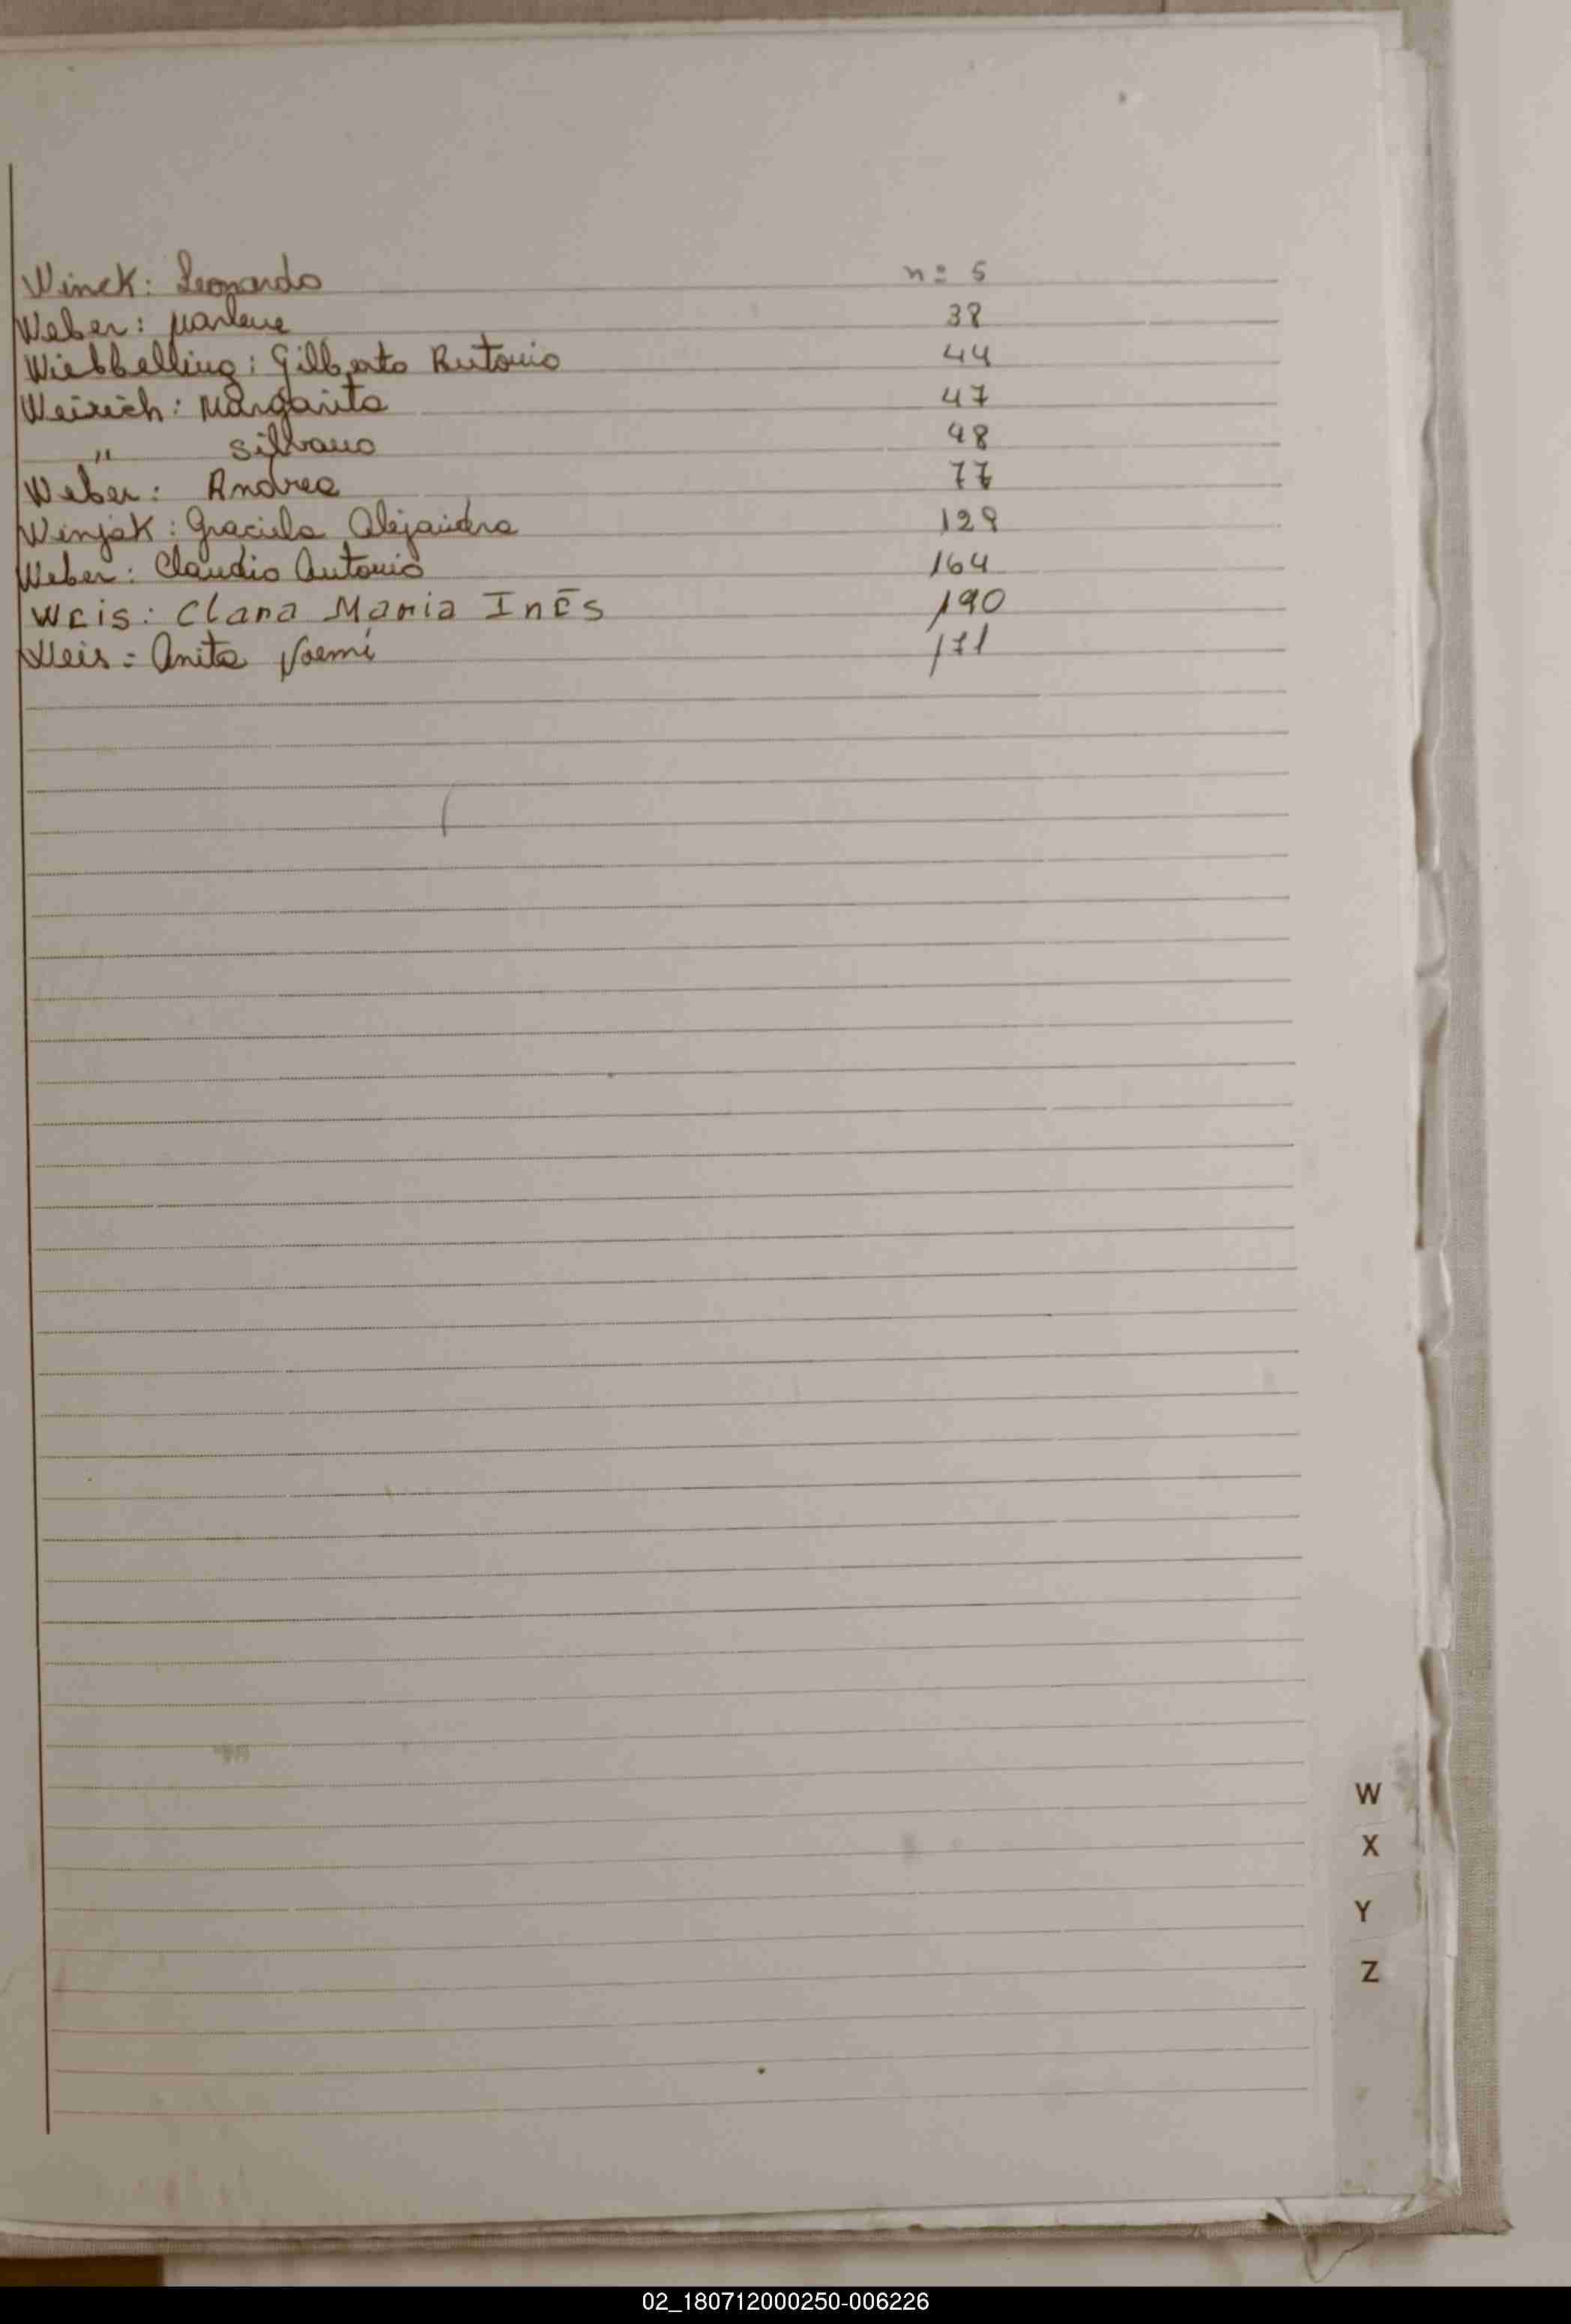 Winck: Leonardo n= 5
Weber: Marlene 38
Wiebbelling: Gilberto Antonio 44
Weirich: Margarita 47
" Silvano 48
Weber: Andrea 77
Winjak: Graciela Alejandra 129
Weber: Claudio Antonio 164
Weis: Clara Maria Inēs 190
Weis = Anita Noemí 171
W
X
Y
Z
02_180712000250-006226